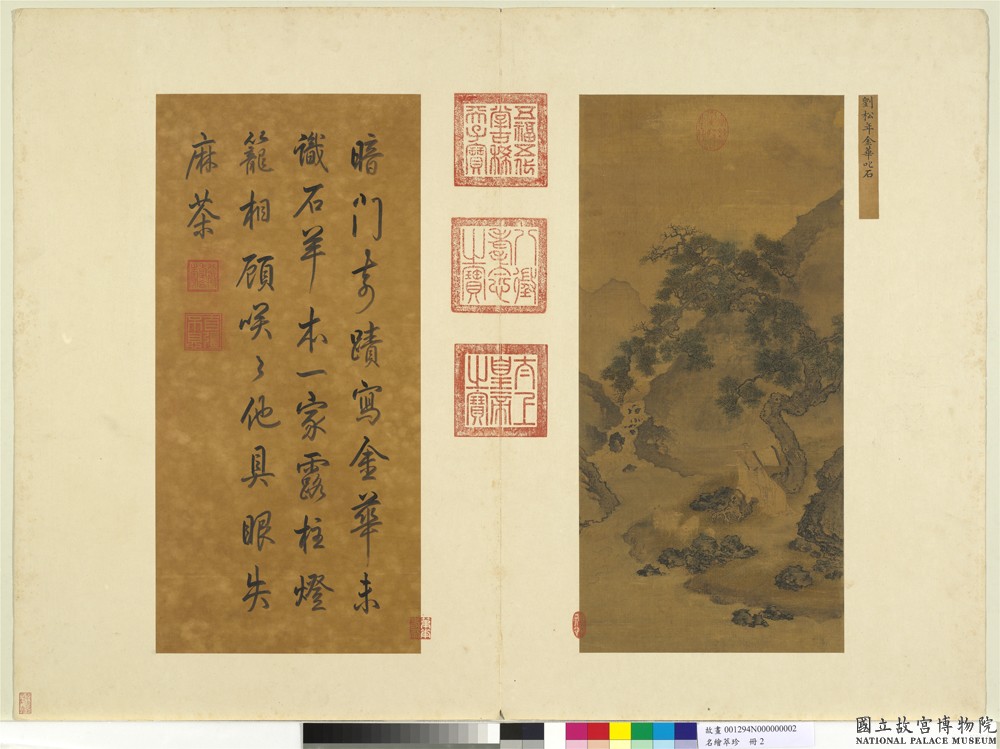 劉松年金華叱石
五福五代
堂古稀
天子寶
八徵
耄念
之寶
太上
皇帝
之寶
暗門奇蹟寫金華未
識石羊本一家露柱燈
籠相顧咲々他具眼失
麻茶
故畫 001294N000000002
名繪萃珍 冊 2
國立故宮博物院
NATIONAL PALACE MUSEUM